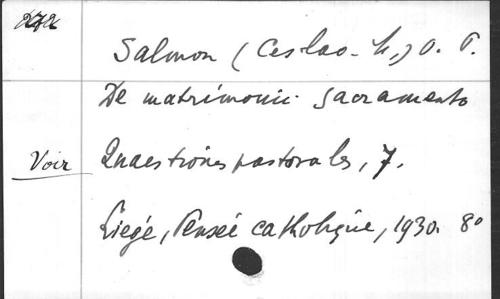 272
Salmon (Ceslao-h.) O. P.
De matrimonii Sacramento
Voir Quaestiones pastorales, 7.
Liegé, Pensée catholique, 1930. 8°